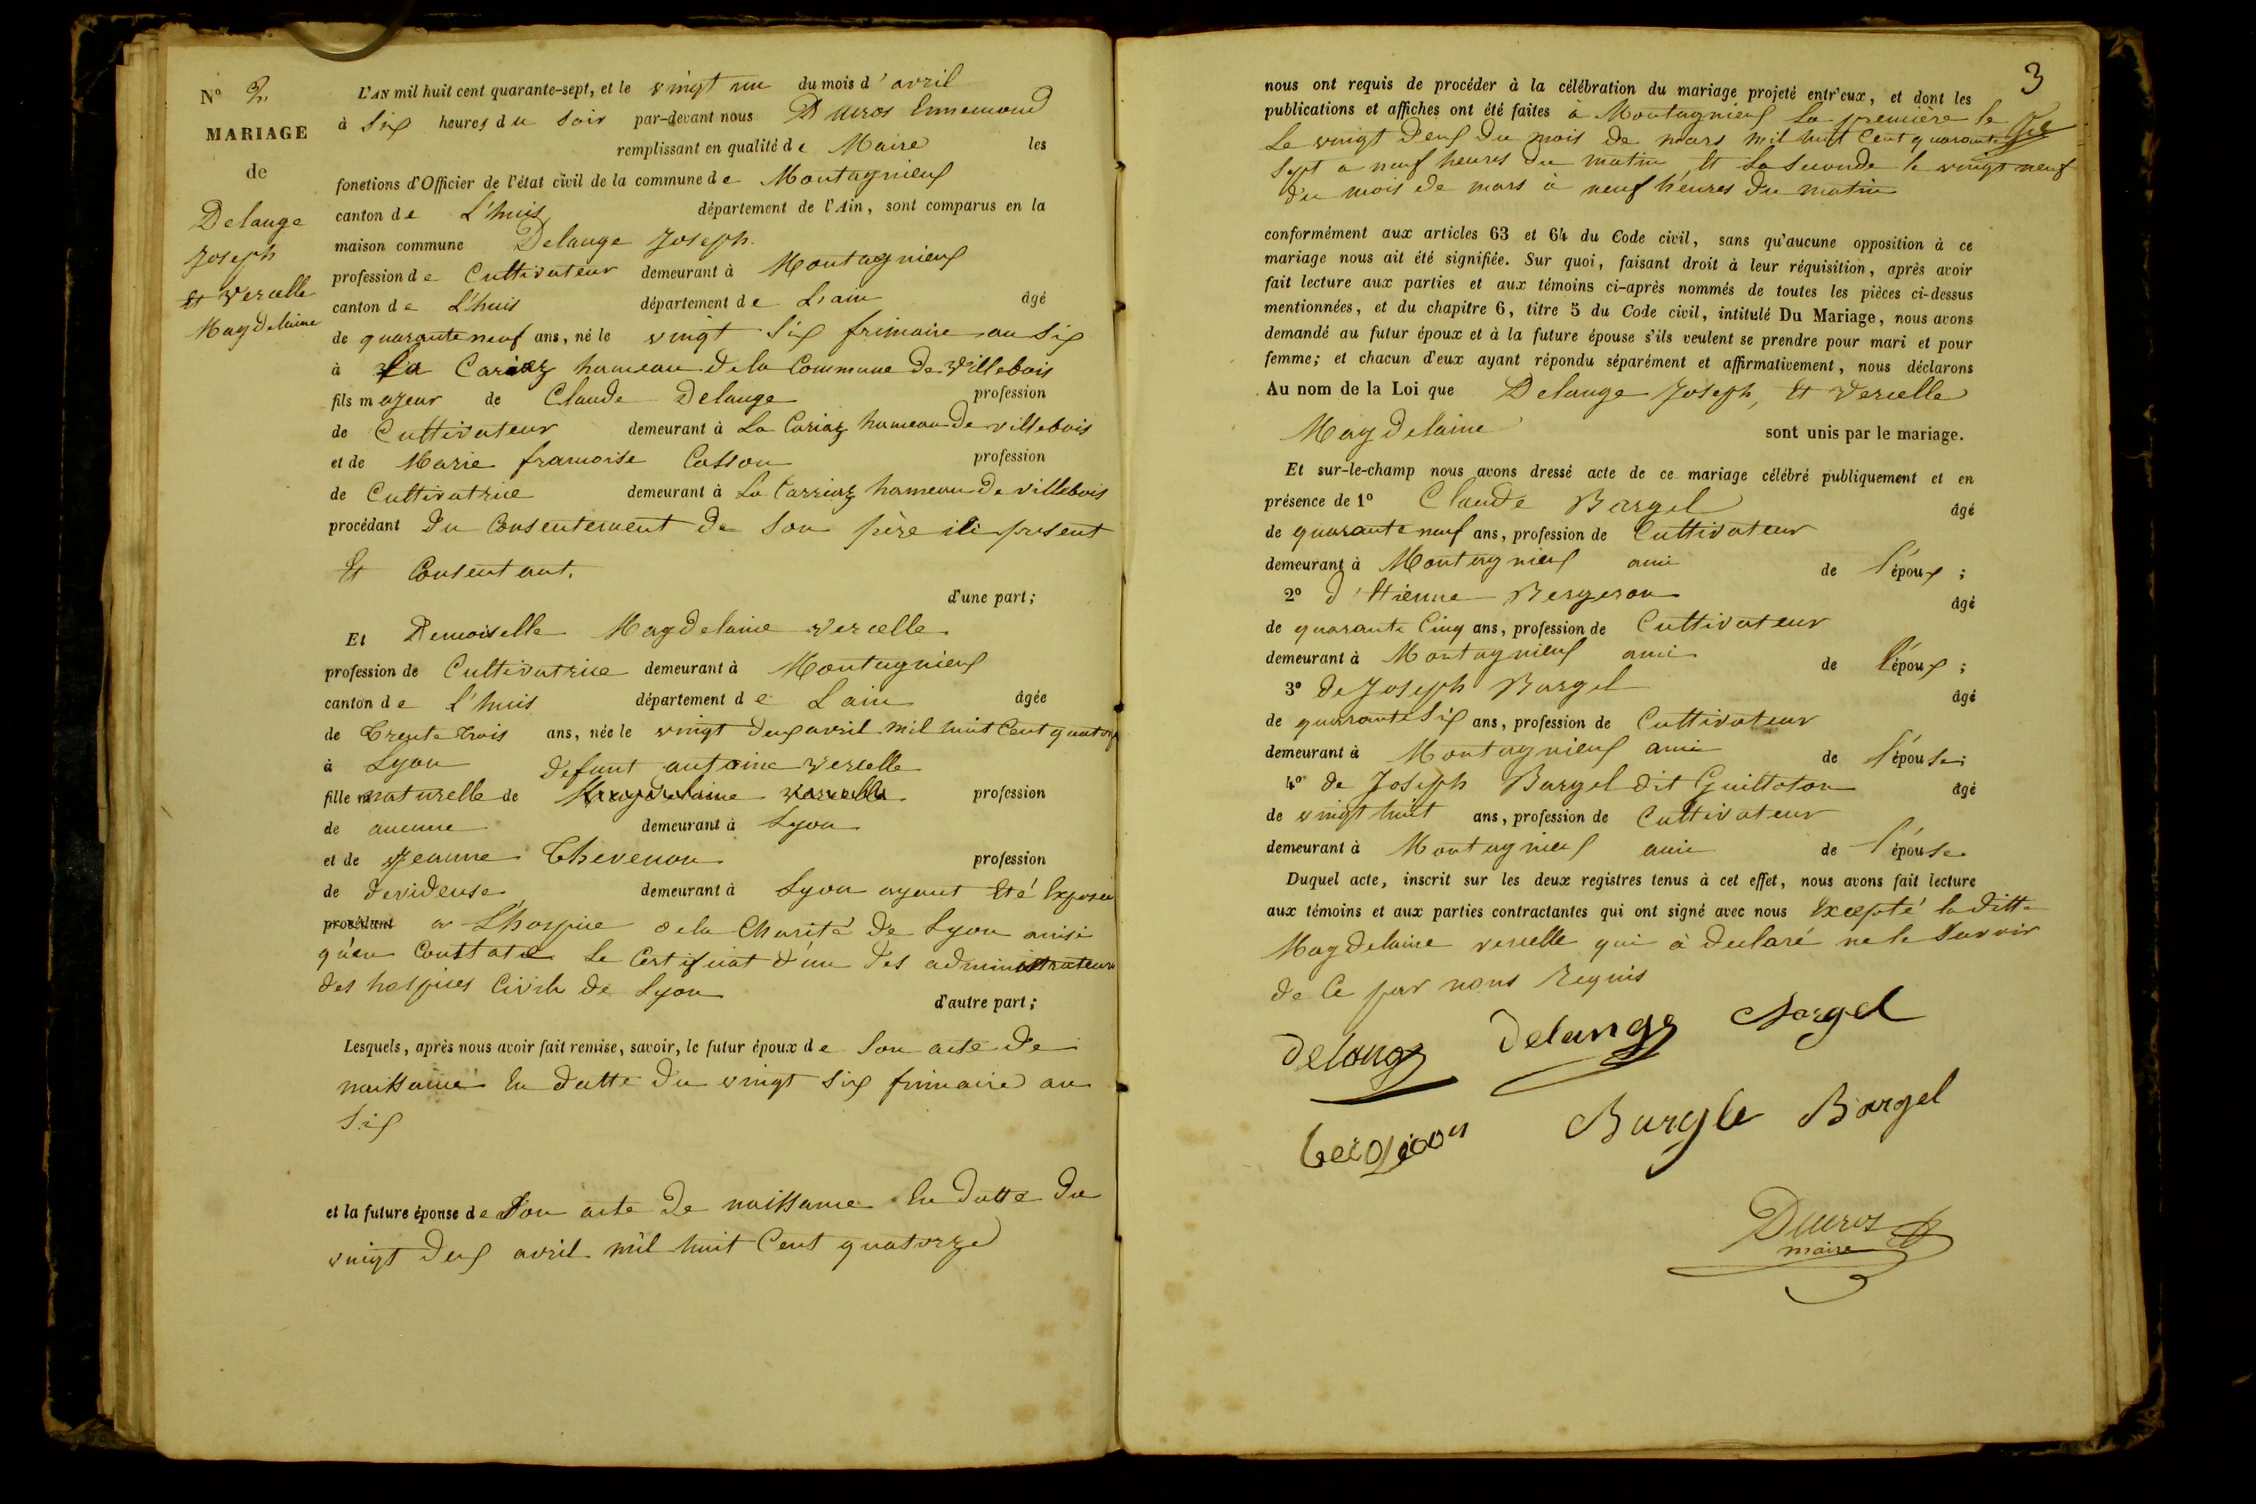 N° 2.
MARIAGE
de
Delange
Joseph
Et Vercelle
Magdelaine
L'AN mil huit cent quarante-sept, et le vingt un du mois d'avril
à Six heures du Soir par-devant nous Ducros Ennemond
remplissant en qualité de Maire les
fonctions d'Officier de l'état civil de la commune de Montagnieux
canton de L'huis département de l'Ain, sont comparus en la
maison commune Delange Joseph.
profession de Cultivateur demeurant à Montagnieux
canton de L'huis département de L'ain âgé
de quarante neuf ans, né le vingt Six frimaire an Six
à La Cariaz hameau de la Commune de Villebois
fils majeur de Claude Delange profession
de Cultivateur demeurant à La Cariaz hameau de villebois
et de Marie francoise Cosson profession
de Cultivatrice demeurant à La Carriaz hameau de villebois
procédant du Consentement de Son père ici présent
Et Consentant.
d'une part;
Et Demoiselle Magdelaine Vercelle
profession de Cultivatrice demeurant à Montagnieux
canton de l'huis département de L'ain âgée
de Trente trois ans, née le vingt deux avril mil huit Cent quatorze
à Lyon défunt antoine Vercelle
fille naturelle de Magdelaine Vercelle profession
de aucune demeurant à Lyon
et de Jeanne Thevenon profession
de devideuse demeurant à Lyon ayant Eté Exposée
procédant a L'hospice de la Charité de Lyon ainsi
qu'en Constate Le Certificat d'un des administrateurs
des hospices Civils de Lyon
d'autre part;
Lesquels, après nous avoir fait remise, savoir, le futur époux de Son acte de
naissance En datte du vingt Six frimaire an
Six
et la future épouse de Son acte de naissance En datte du
vingt deux avril mil huit Cent quatorze
3
nous ont requis de procéder à la célébration du mariage projeté entr'eux, et dont les
publications et affiches ont été faites à Montagnieux La première le
Le vingt deux du mois de mars mil huit Cent quarante
Sept a neuf heures du matin Et La Seconde le vingt neuf
du mois de mars à neuf heures du matin
conformément aux articles 63 et 64 du Code civil, sans qu'aucune opposition à ce
mariage nous ait été signifiée. Sur quoi, faisant droit à leur réquisition, après avoir
fait lecture aux parties et aux témoins ci-après nommés de toutes les pièces ci-dessus
mentionnées, et du chapitre 6, titre 5 du Code civil, intitulé Du Mariage, nous avons
demandé au futur époux et à la future épouse s'ils veulent se prendre pour mari et pour
femme; et chacun d'eux ayant répondu séparément et affirmativement, nous déclarons
Au nom de la Loi que Delange Joseph, Et Vercelle
Magdelaine sont unis par le mariage.
Et sur-le-champ nous avons dressé acte de ce mariage célébré publiquement et en
présence de 1° Claude Bargel âgé
de quarante neuf ans, profession de Cultivateur
demeurant à Montagnieux ami de l'époux;
2° d'Etienne Bergeron âgé
de quarante Cinq ans, profession de Cultivateur
demeurant à Montagnieux ami de l'époux;
3° de Joseph Bargel âgé
de quarante Six ans, profession de Cultivateur
demeurant à Montagnieux ami de l'épouse;
4° de Joseph Bargel dit Guilloton âgé
de vingt huit ans, profession de Cultivateur
demeurant à Montagnieux ami de l'épouse
Duquel acte, inscrit sur les deux registres tenus à cet effet, nous avons fait lecture
aux témoins et aux parties contractantes qui ont signé avec nous Excepté la ditte
Magdelaine vercelle qui à declaré ne le Savoir
de Ce par nous Requis
Delange Delange Bargel
Bargel Bargel
Ducros
maire